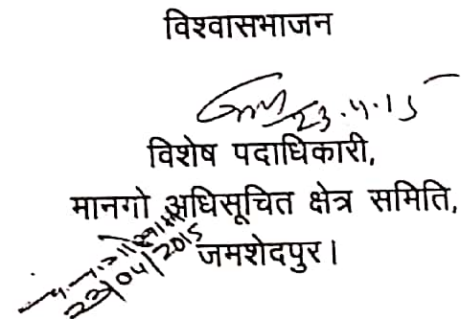 विश्वासभाजन
23.4.15
विशेष पदाधिकारी,
मानगो अधिसूचित क्षेत्र समिति,
जमशेदपुर।
22/04/2015